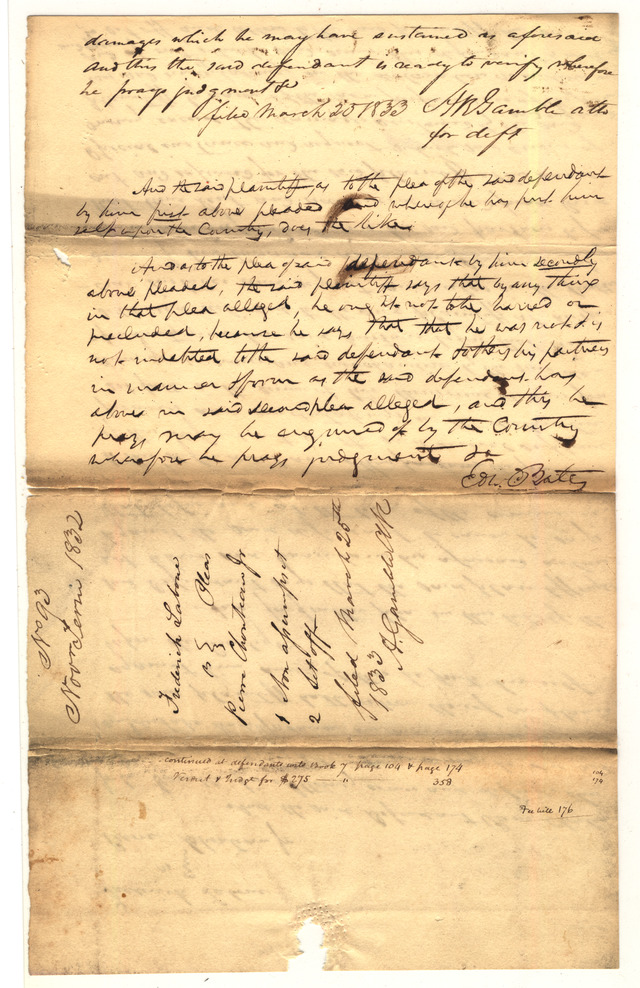 damages which he may have sustained as aforesaid
and this the said defendant is ready to verify wherefore
he prays judgment &c
filed March 25 1833 H R Gamble atto
for deft
And the said plaintiff as to the plea of the said defendant
by him first above pleaded and whereof he has put him
self upon the Country, does the like
And as to the plea of said defendant by him secondly
above pleaded, the said plaintiff says that by any thing
in that plea alleged, he ought not to be barred or
precluded, because he says that that he was not & is
not indebted to the said defendant & others his partners
in manner & form as the said defendant has
above in said second plea alleged, and this he
prays may be enquired of by the Country
wherefore he prays judgment &c
Edw. Bates
No 93
Novr Term 1832
Frederick Labone
vs } Pleas
Pierre Chouteau Jr
1 Non assumpsit
2 Set off
filed March 25th
1833
A Gamble Clk
continued at defendants costs Book 7 page 104 & page 174
Verdict & Judgt for $275 — " 358
104
174
Fee bill 176